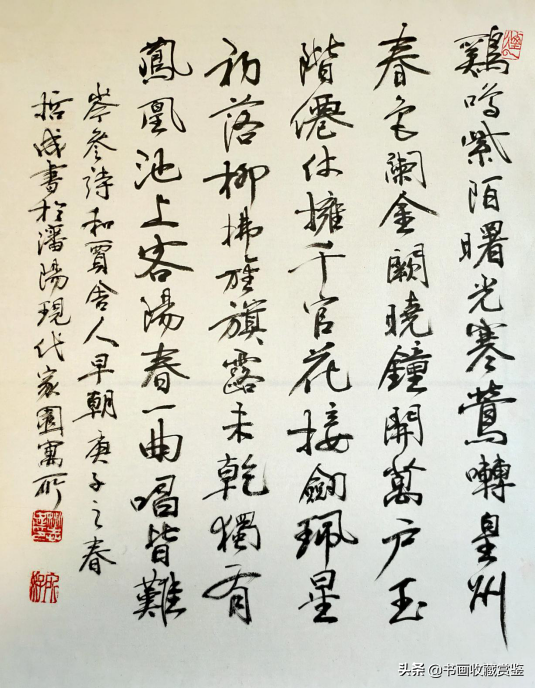 鷄鳴紫陌曙光寒鶯囀皇州
春色闌金闕曉鐘開萬户玉
階僊仗擁千官花接劍珮星
初落柳拂旌旗露未乾獨有
鳳凰池上客陽春一曲唱皆難
岑參詩和賈舍人早朝庚子之春
哲成書於瀋陽現代家園寓所
头条 @书画收藏赏鉴